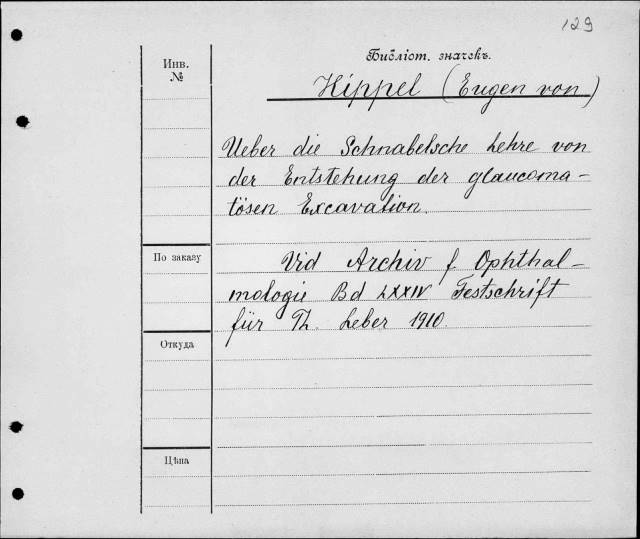 129
Библіот. значекъ.
Инв.
№
Hippel (Eugen von)
Ueber die Schnabelsche Lehre von
der Entstehung der glaucoma-
tösen Excavation.
По заказу
Vid Archiv f Ophthal-
mologie Bd LXXIV Festschrift
für Th. Leber 1910.
Откуда
Цѣна